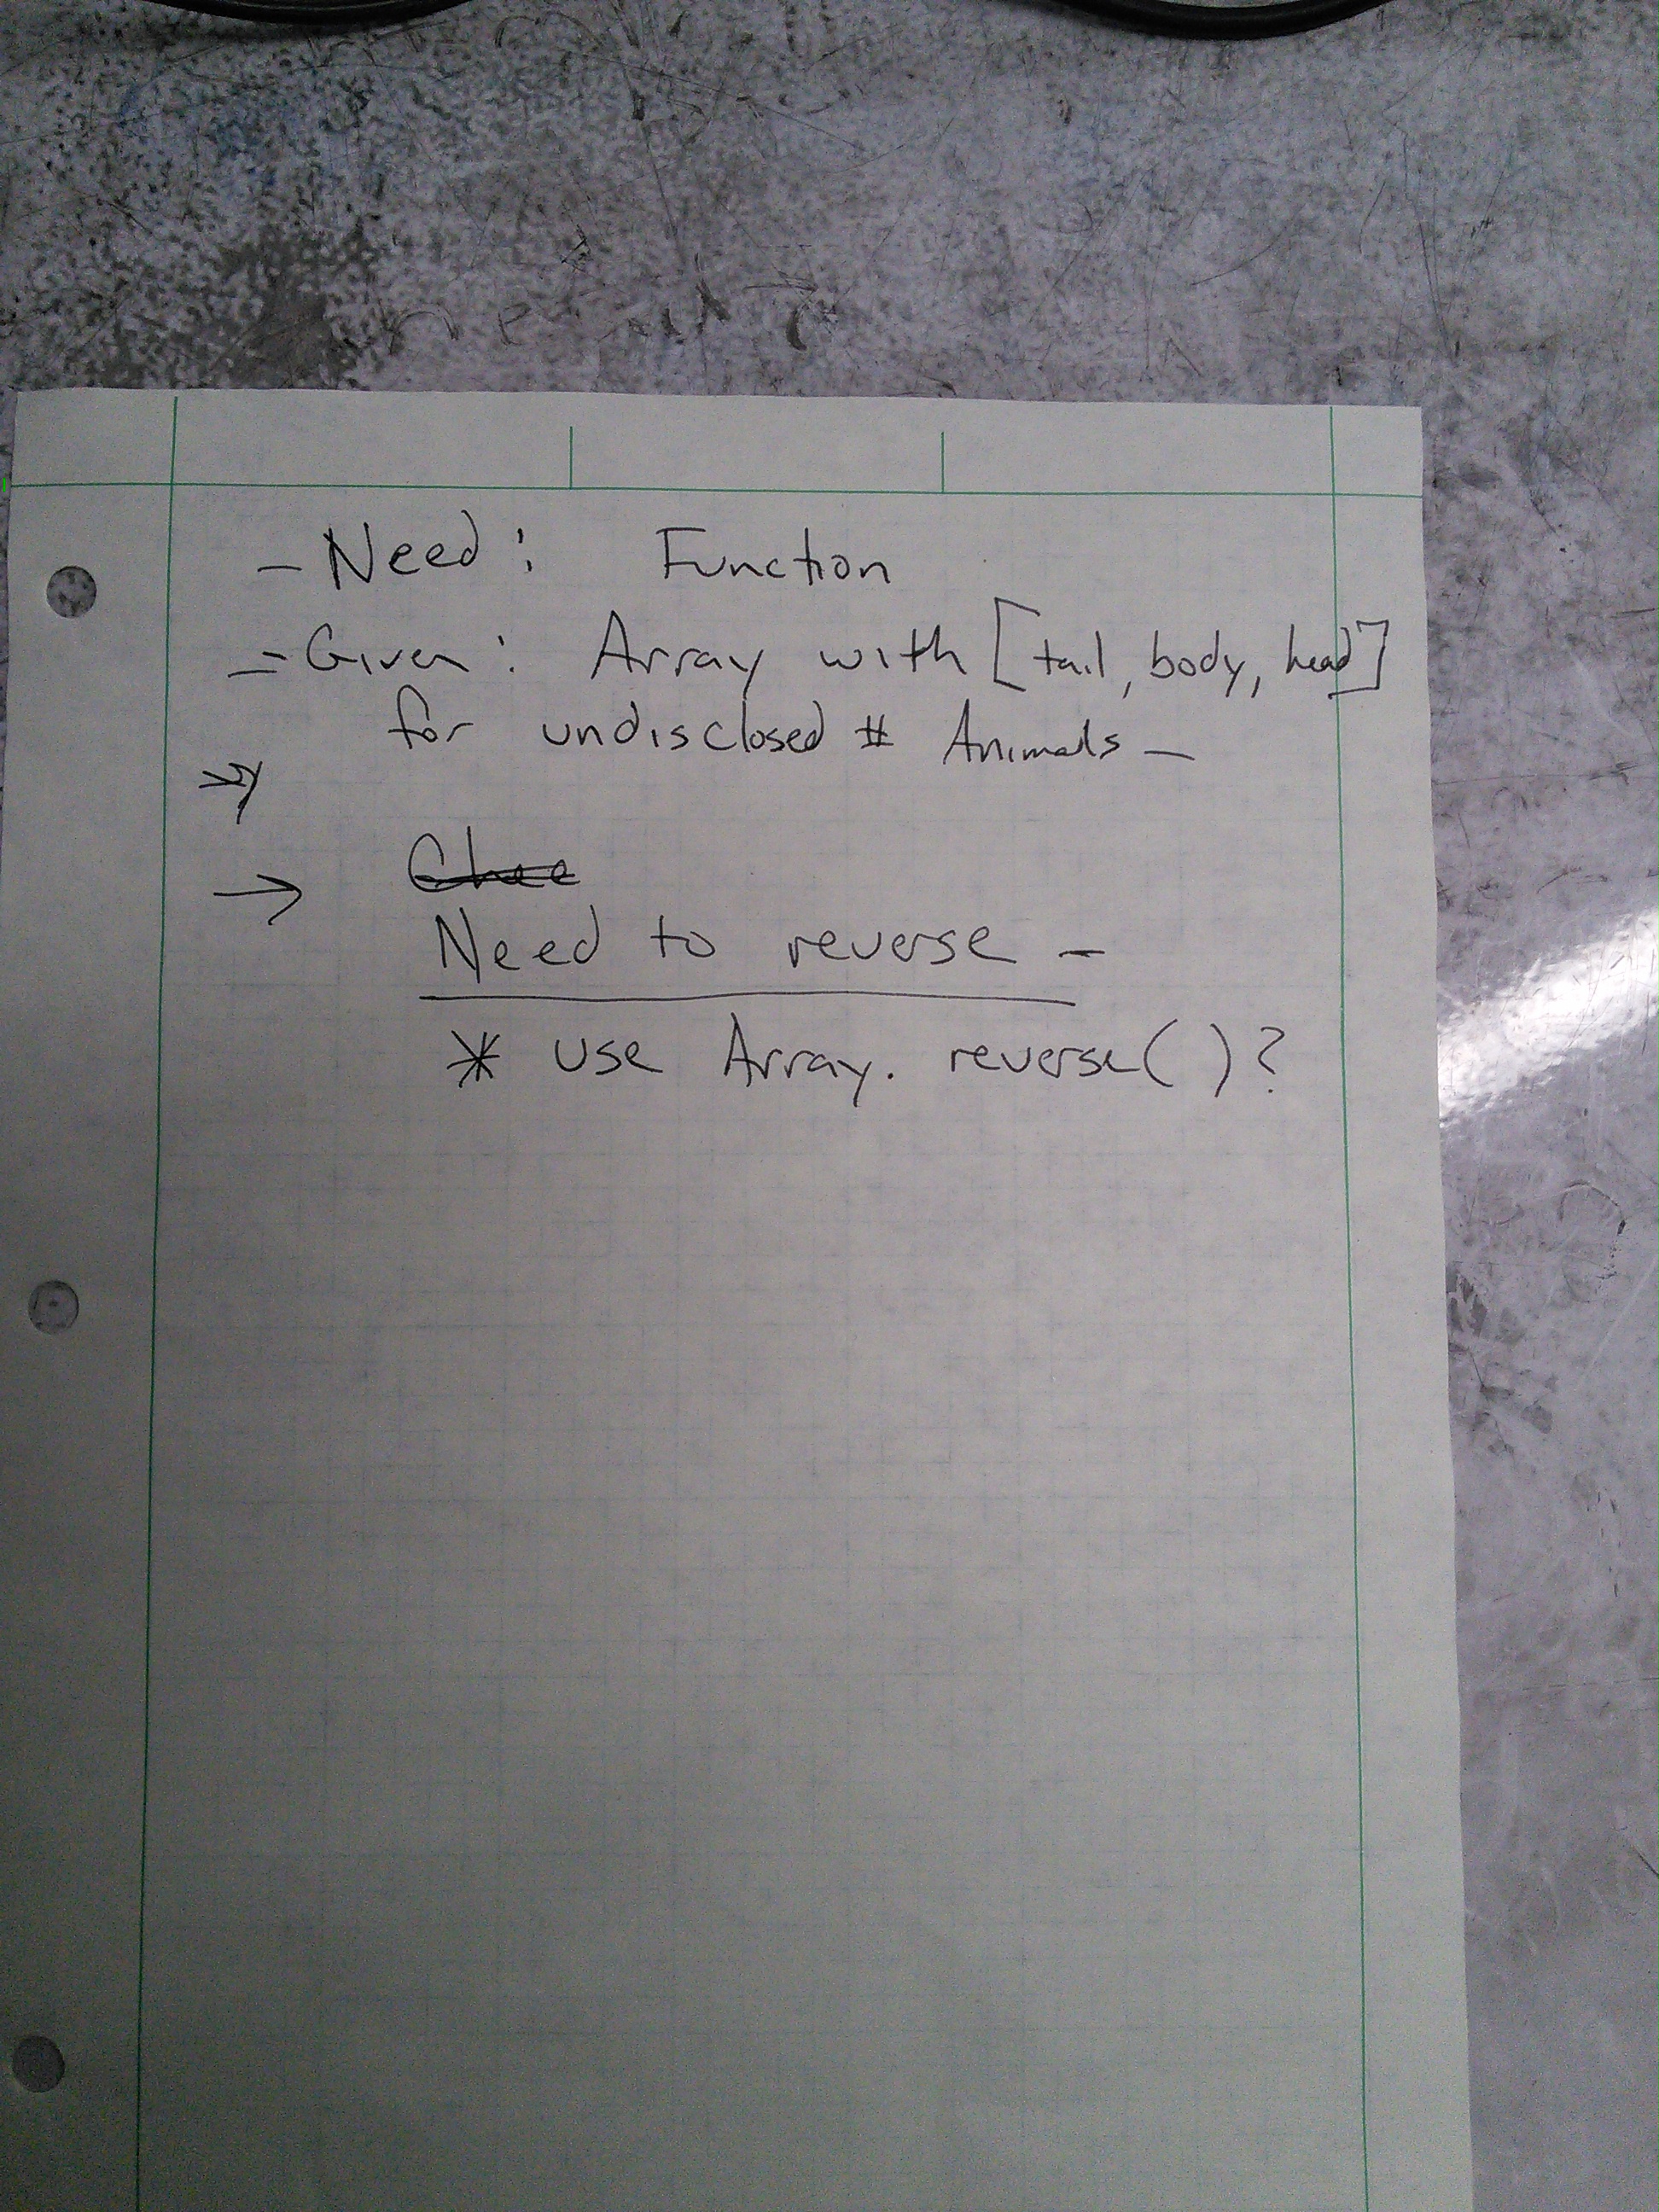 - Need: Function
- Given: Array with [tail, body, head]
for undisclosed # Animals -
→
→ Chee
Need to reverse -
* use Array. reverse()?